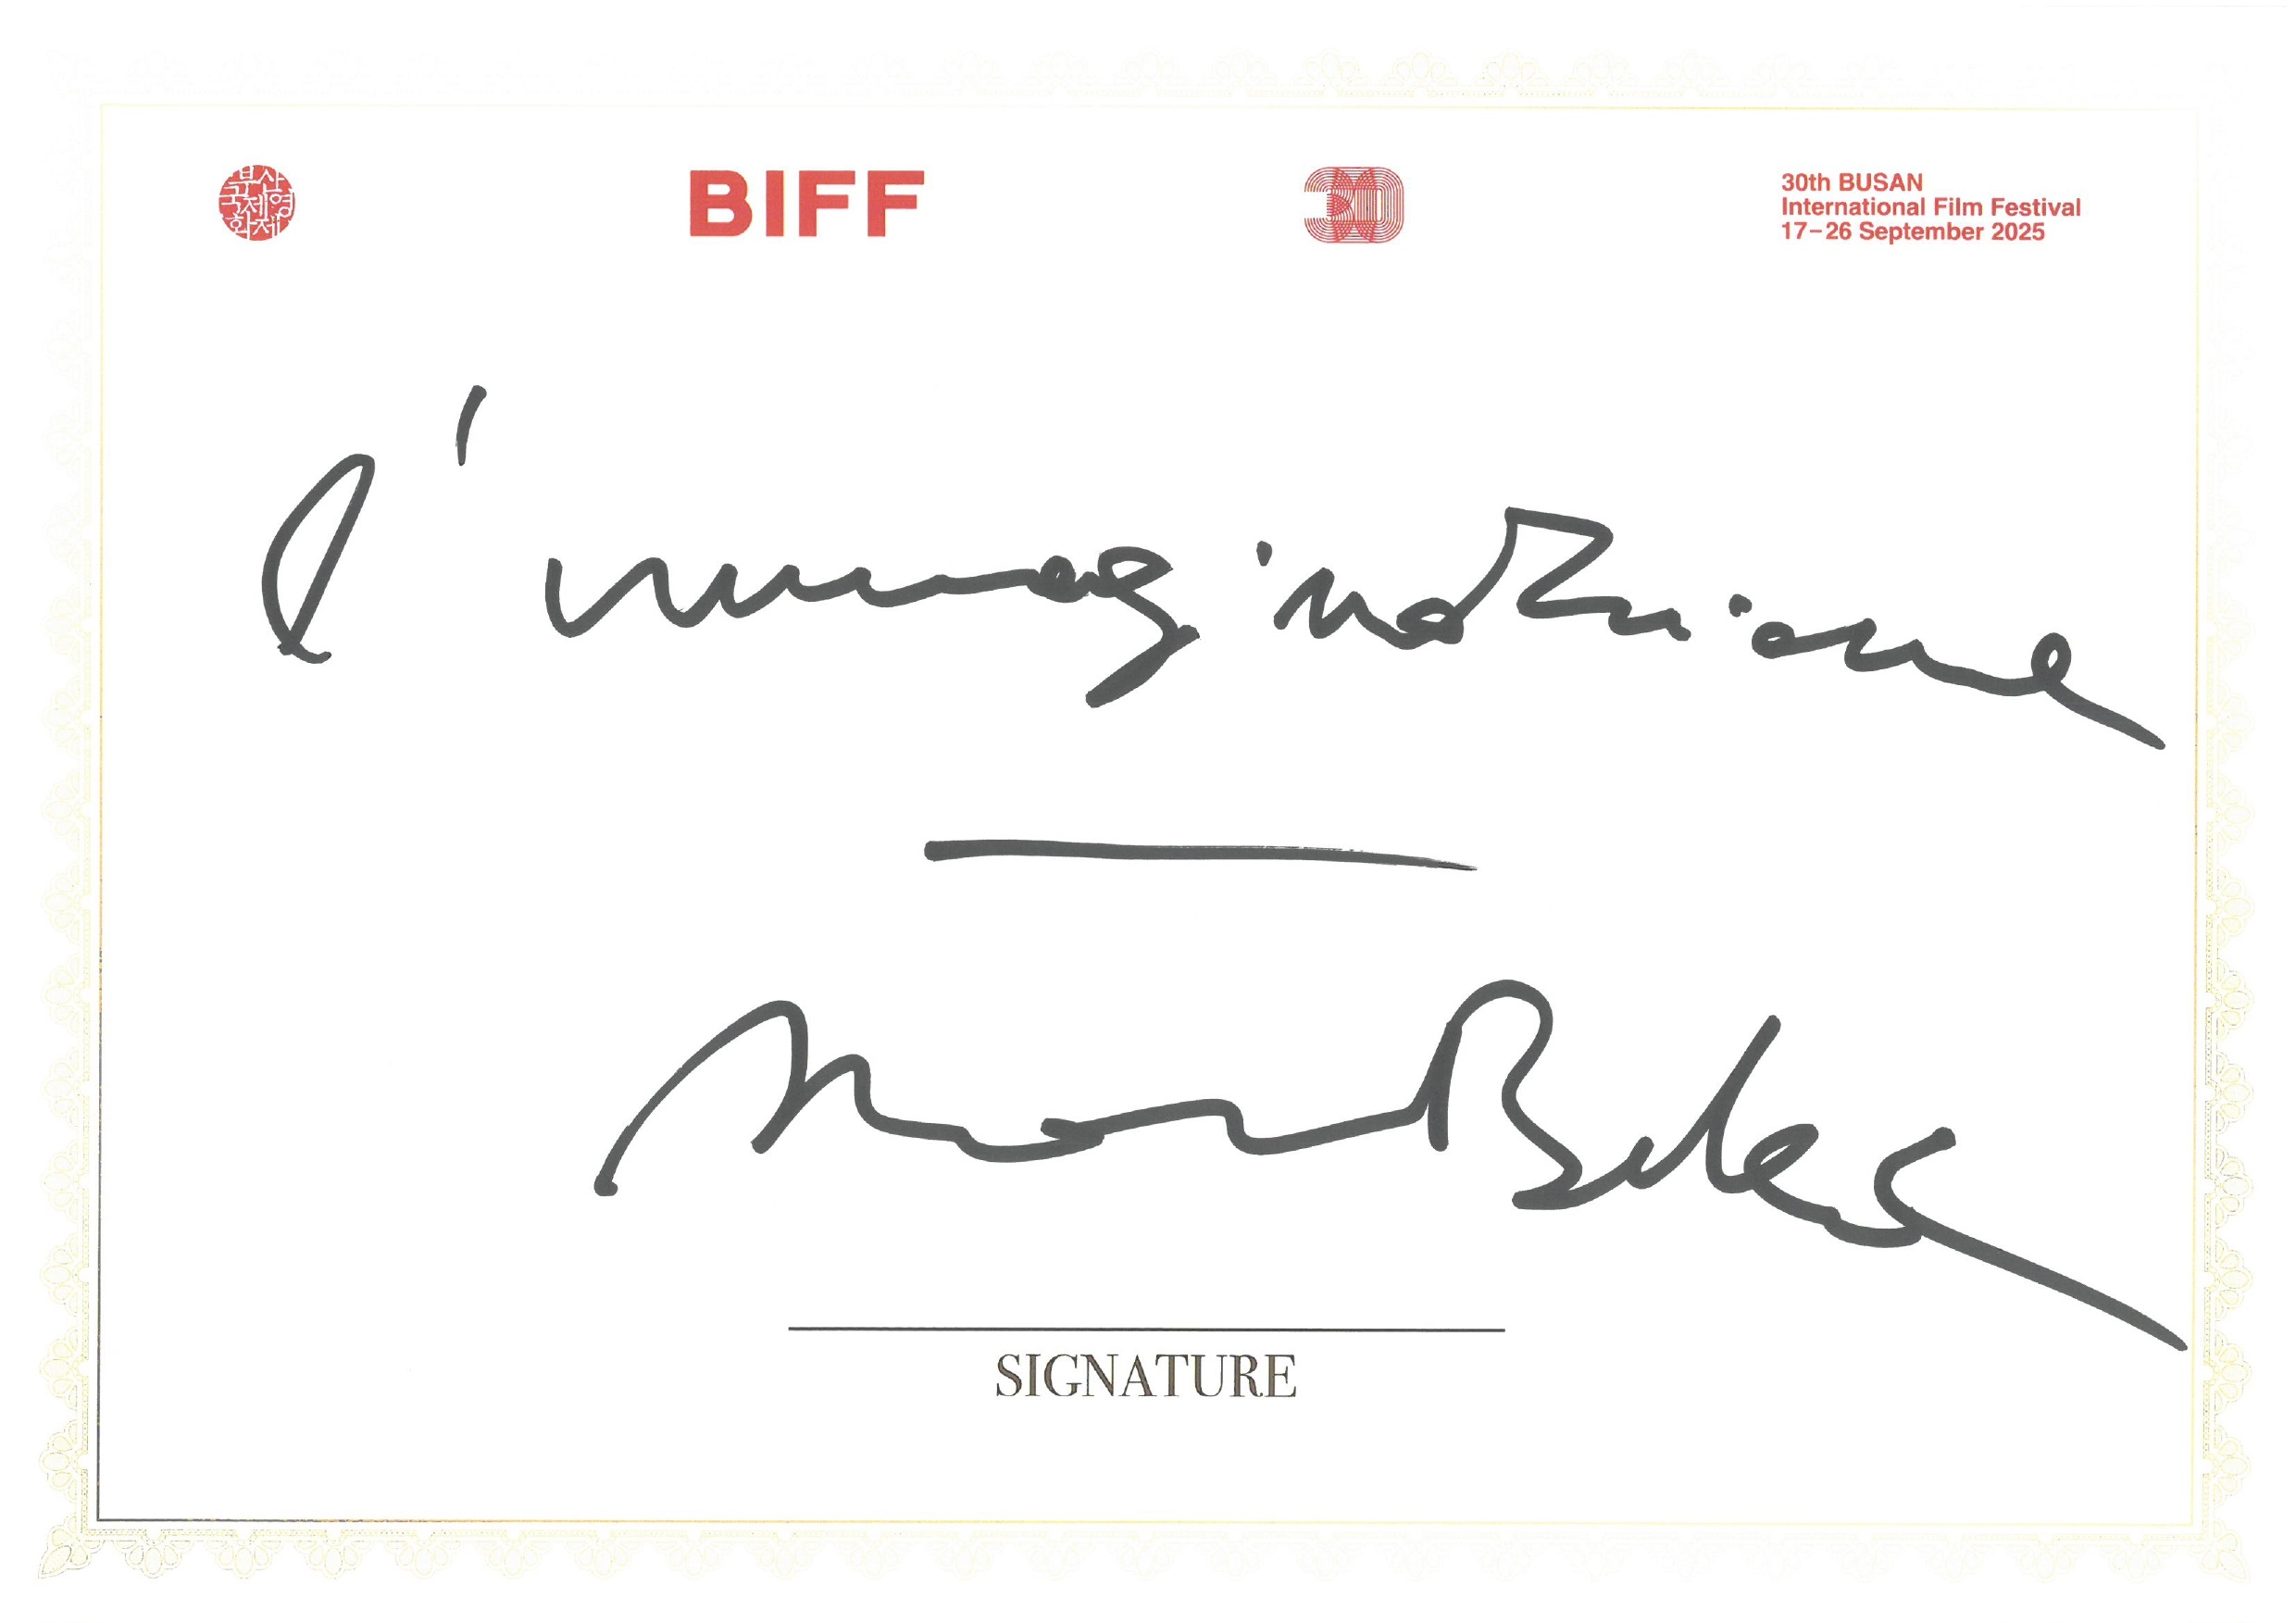 부산
국제영
화제
BIFF
30
30th BUSAN
International Film Festival
17–26 September 2025
l'immaginazione
SIGNATURE